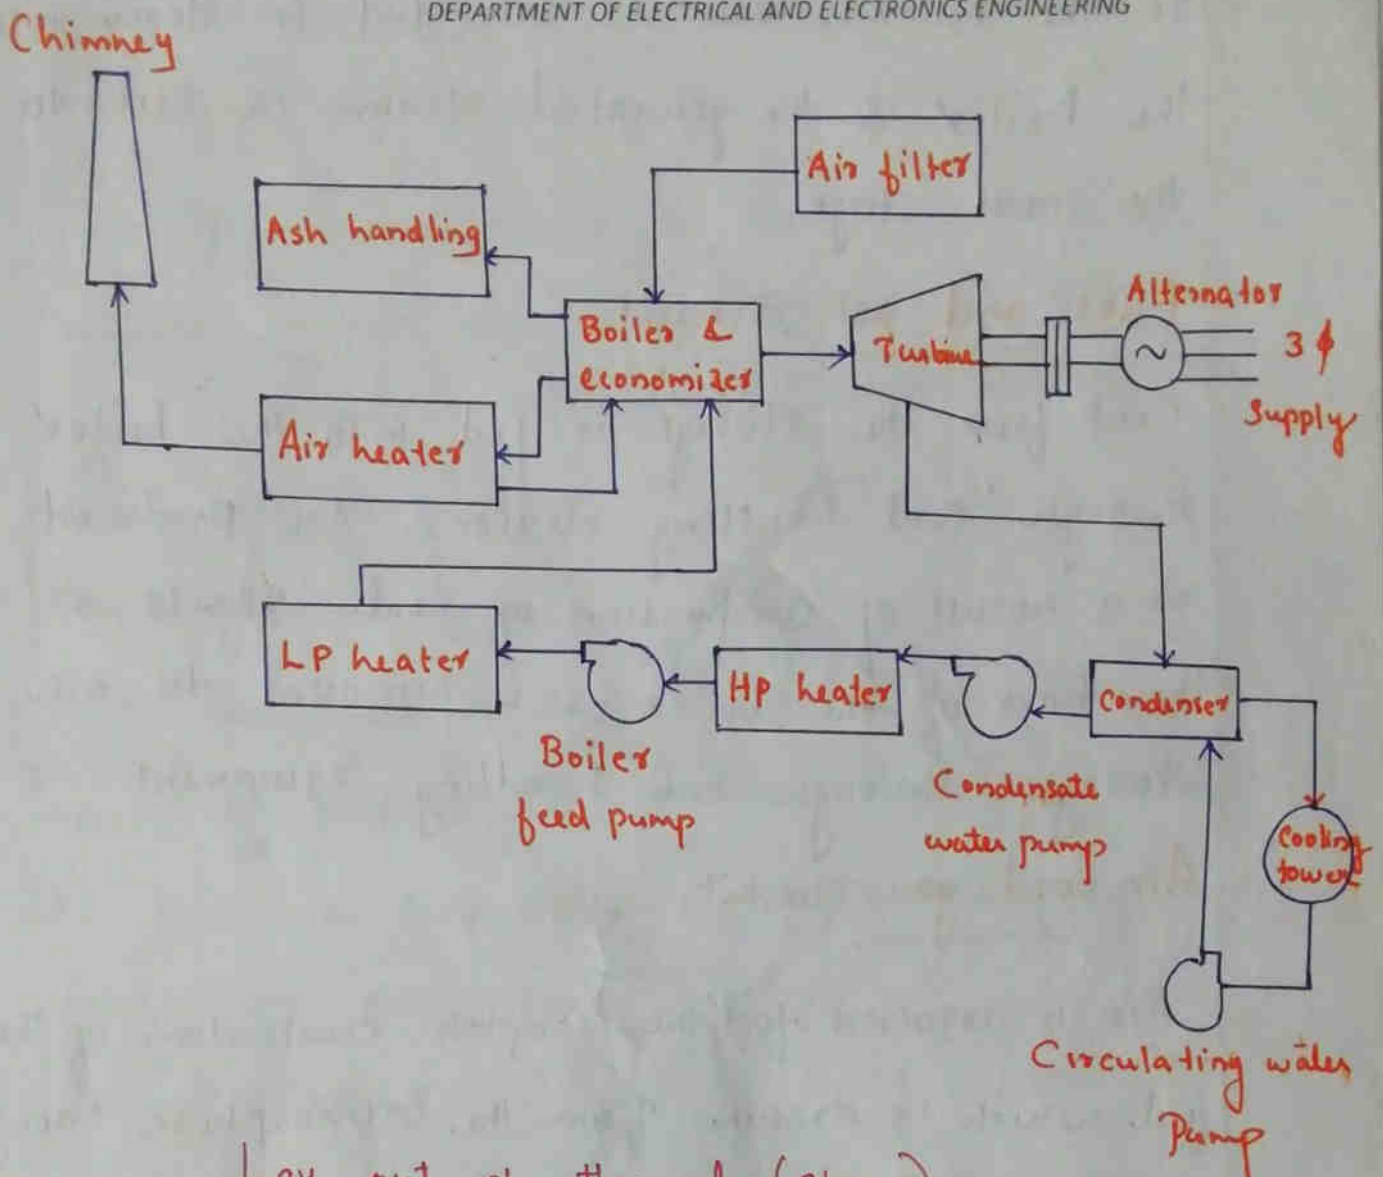 DEPARTMENT OF ELECTRICAL AND ELECTRONICS ENGINEERING
Chimney
Air filter
Ash handling
Alternator
Boiler &
economizer
Turbine
~
3 ϕ
Supply
Air heater
LP heater
HP heater
Condenser
Boiler
feed pump
Condensate
water pump
Cooling
tower
Circulating water
Pump